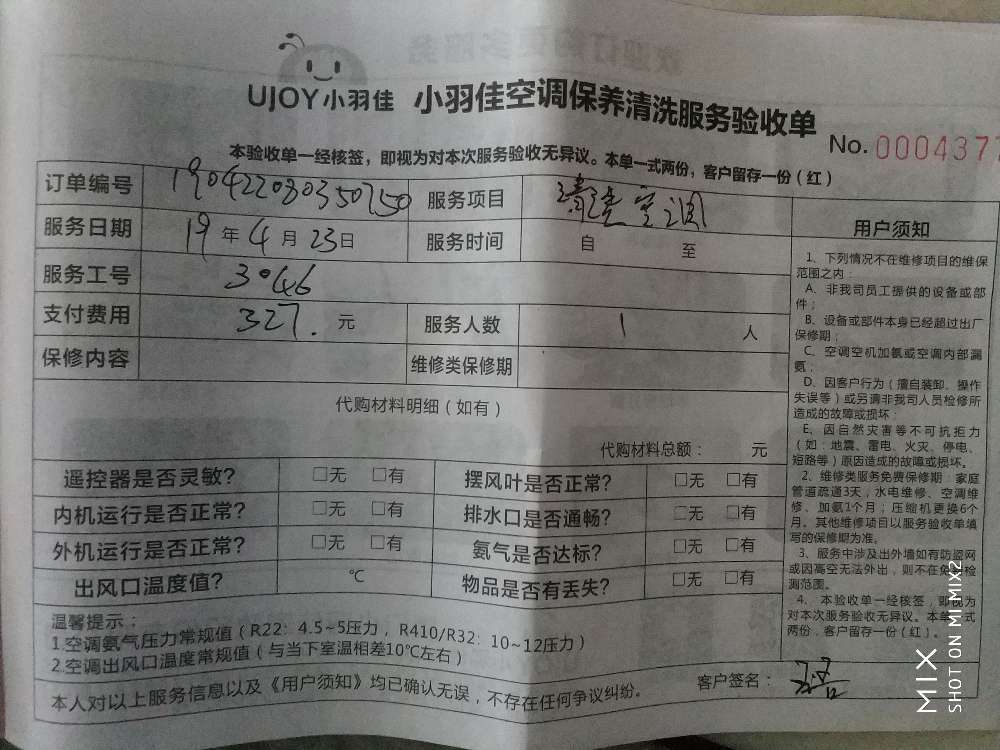 UJOY小羽佳 小羽佳空调保养清洗服务验收单
No. 0004377
本验收单一经核签，即视为对本次服务验收无异议。本单一式两份，客户留存一份（红）
订单编号 190422080350750 服务项目 清洗空调
服务日期 19 年 4 月 23 日 服务时间 自 至
服务工号 3046
支付费用 327. 元 服务人数 1 人
保修内容 维修类保修期
代购材料明细（如有）
代购材料总额： 元
遥控器是否灵敏? □无 □有 摆风叶是否正常? □无 □有
内机运行是否正常? □无 □有 排水口是否通畅? □无 □有
外机运行是否正常? □无 □有 氨气是否达标? □无 □有
出风口温度值? ℃ 物品是否有丢失? □无 □有
温馨提示：
1.空调氨气压力常规值（R22：4.5~5压力，R410/R32：10~12压力）
2.空调出风口温度常规值（与当下室温相差10℃左右）
本人对以上服务信息以及《用户须知》均已确认无误，不存在任何争议纠纷。 客户签名：
用户须知
1、下列情况不在维修项目的维保
范围之内：
A、非我司员工提供的设备或部
件；
B、设备或部件本身已经超过出厂
保修期；
C、空调空机加氨或空调内部漏
氨；
D、因客户行为（擅自装卸、操作
失误等）或另请非我司人员检修所
造成的故障或损坏；
E、因自然灾害等不可抗拒力
（如：地震、雷电、火灾、停电、
短路等）原因造成的故障或损坏。
2、维修类服务免费保修期：家庭
管道疏通3天，水电维修、空调维
修、加氨1个月；压缩机更换6个
月。其他维修项目以服务验收单填
写的保修期为准。
3、服务中涉及出外墙如有防盗网
或因高空无法外出，则不在免 检
测范围。
4、本验收单一经核签，即视为
对本次服务验收无异议。本单一式
两份，客户留存一份（红）。
MIX
SHOT ON MI MIX2